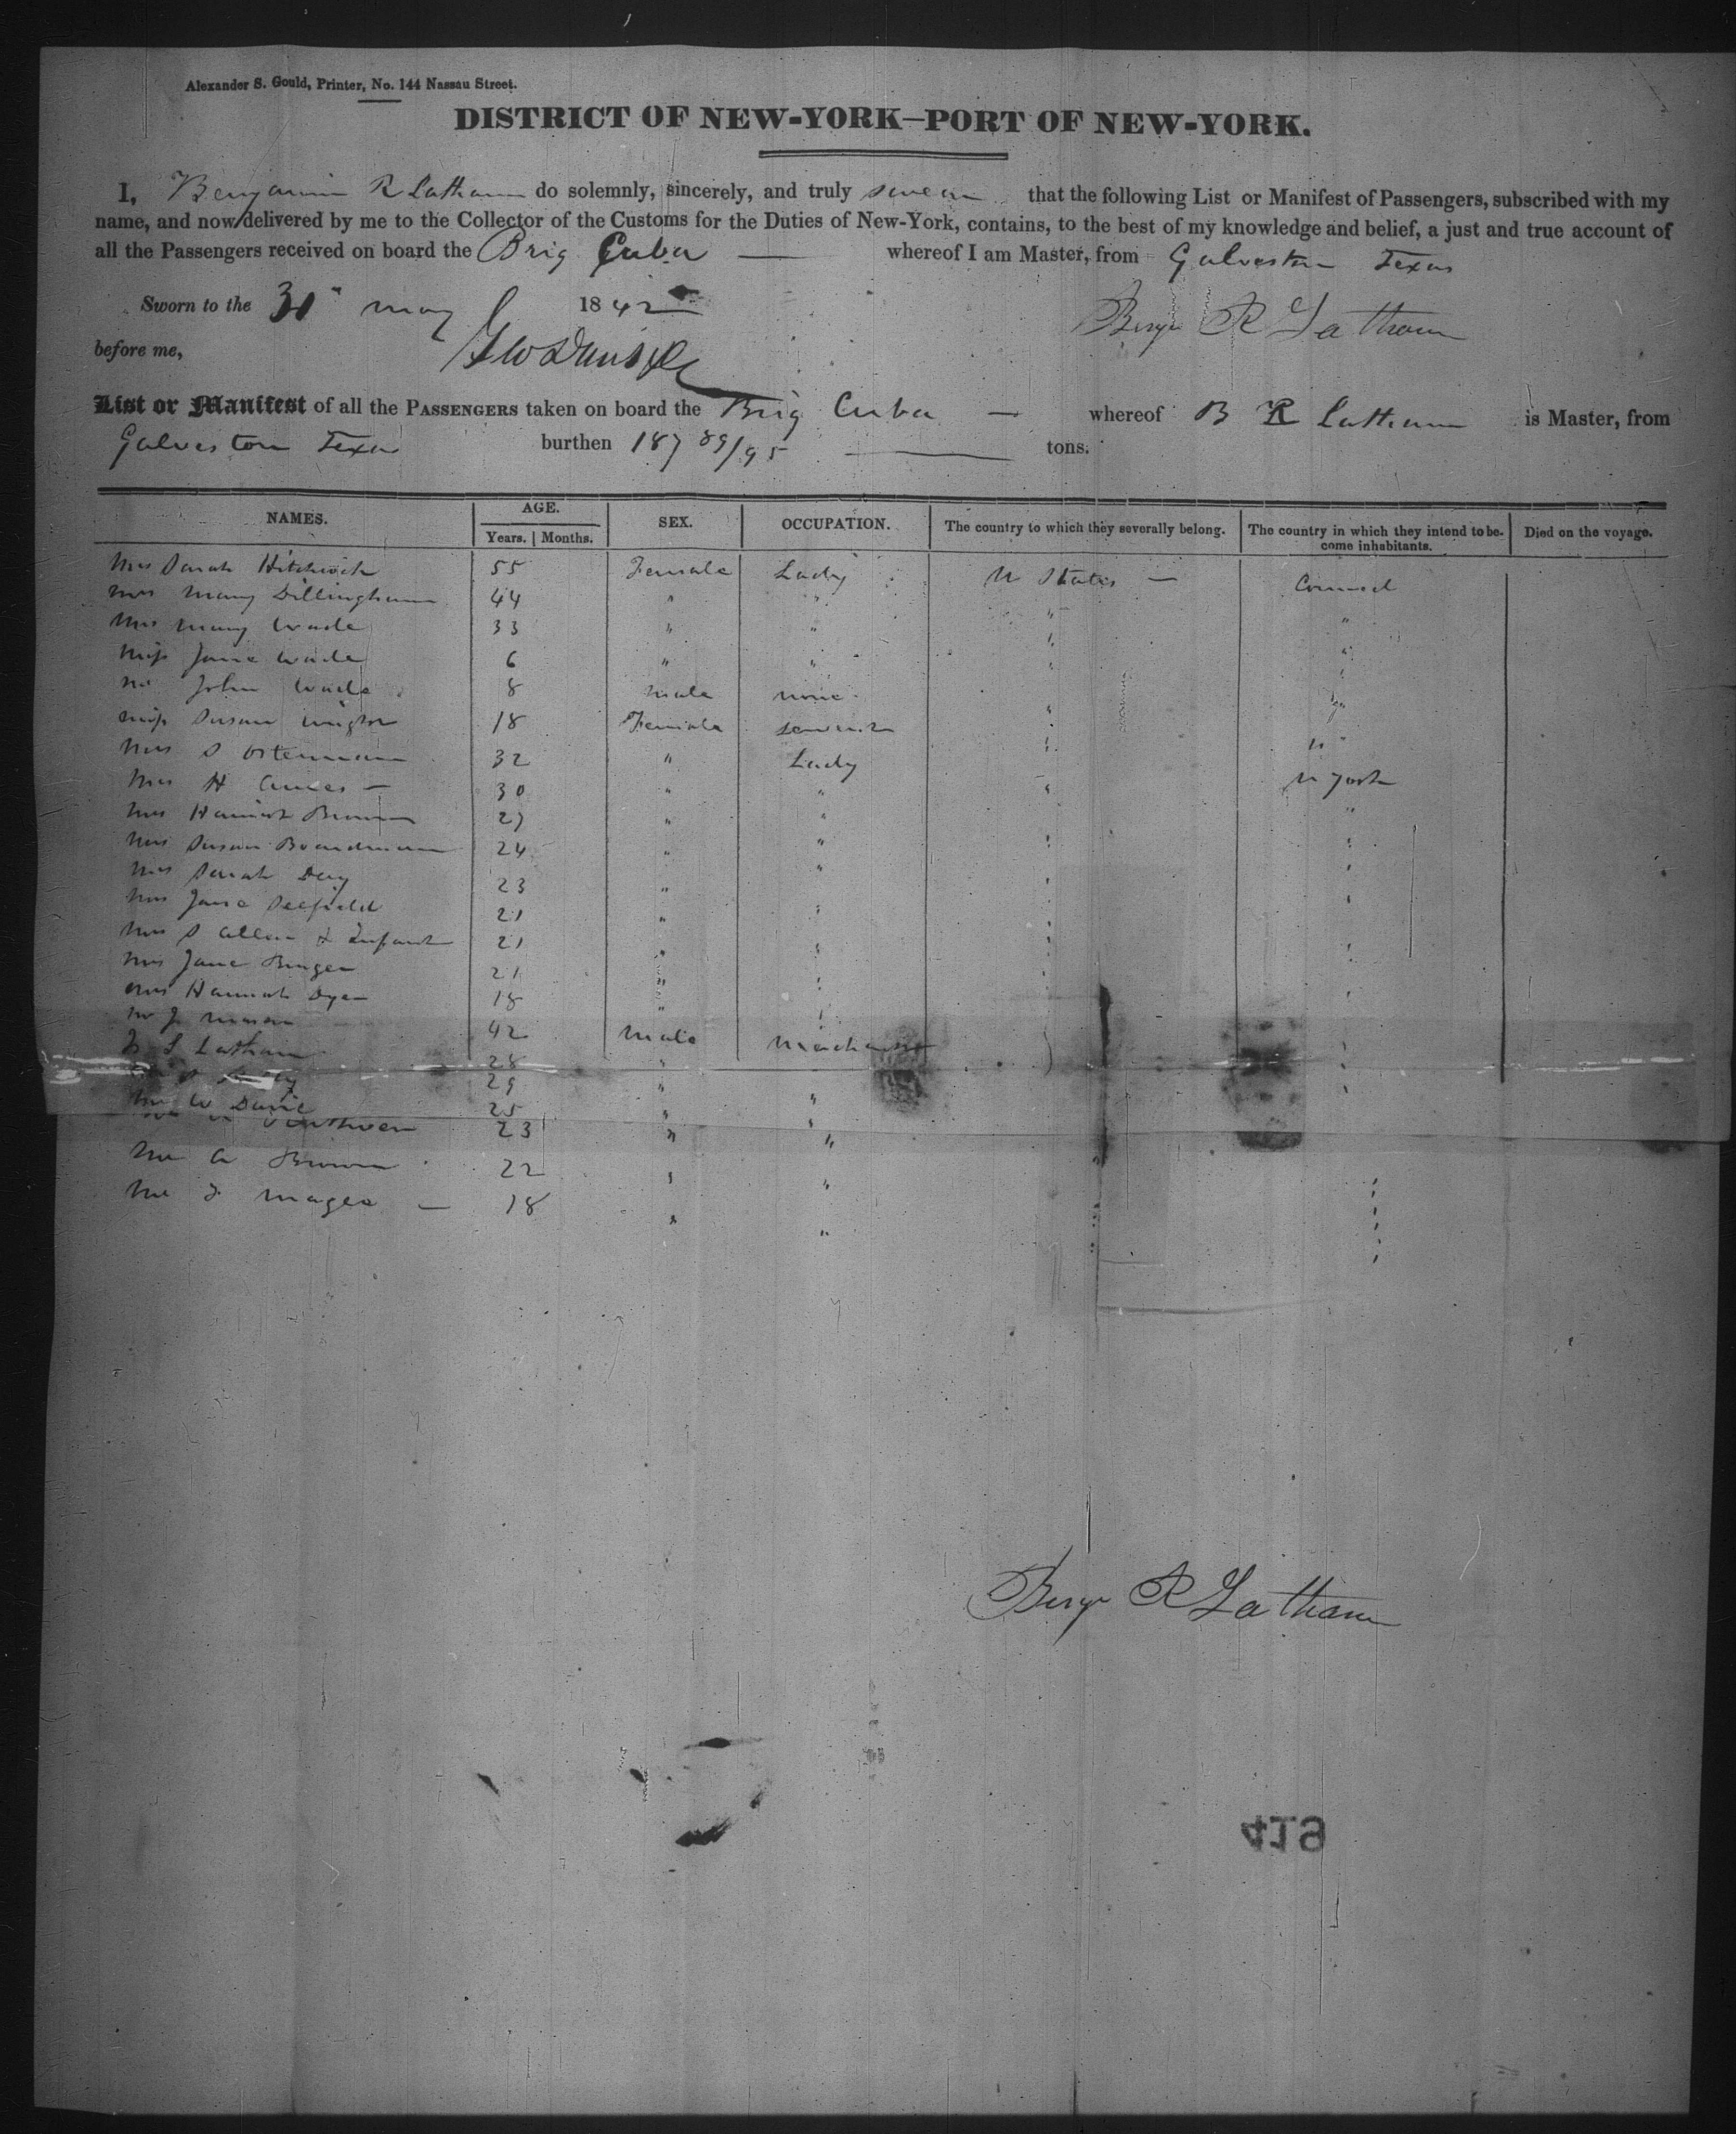 Alexander S. Gould, Printer, No. 144 Nassau Street.
DISTRICT OF NEW-YORK—PORT OF NEW-YORK.
I, Benjamin R Latham do solemnly, sincerely, and truly swear that the following List or Manifest of Passengers, subscribed with my
name, and now delivered by me to the Collector of the Customs for the Duties of New-York, contains, to the best of my knowledge and belief, a just and true account of
all the Passengers received on board the Brig Cuba — whereof I am Master, from Galveston Texas
Sworn to the 31" may 1842 Benjn R Latham
before me,
List or Manifest of all the PASSENGERS taken on board the Brig Cuba — whereof B R Latham is Master, from
Galveston Texas burthen 187 89/95 tons.
NAMES. AGE. SEX. OCCUPATION. The country to which they severally belong. The country in which they intend to be- Died on the voyage.
Years. Months. come inhabitants.
Mrs Sarah Hitchcock 55 Female Lady U States — Connect
Mrs Mary Dillingham 44 " " " "
Mrs Mary Wade 33 " " " "
Miss Jane Wade 6 " " " "
Mr John Wade 8 male none " "
Miss Susan 18 Female servant "
Mrs S Osterman 32 " Lady " N York
Mrs H 30 " " " "
Mrs Hannah Brown 27 " " "
Mrs Susan Boardman 24 " " " "
Mrs Sarah Day 23 " " " "
Mrs Jane 21 " " " "
Mrs S Allen & Infant 21 " " " "
Mrs Jane 21 " " "
Mrs Hannah Dyer 18 " " "
Mr J Mason 42 male merchant "
L Latham 28 " "
29 "
Mr W Davie 25 " "
23 " "
Mr A Brown 22 " " "
Mr J Magee — 18 " " "
Benjn R Latham
419